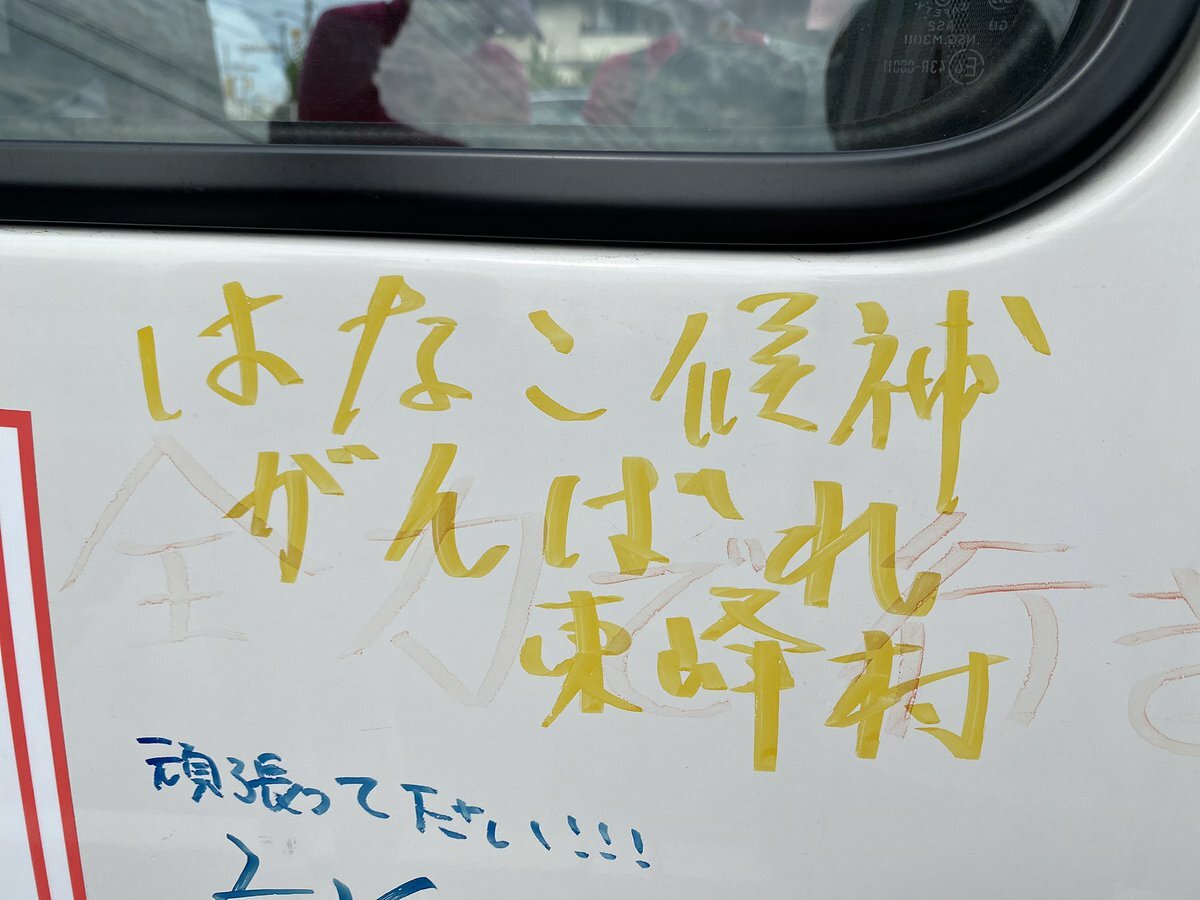 はなこ候補
がんばれ
東峰村
全力で行き
頑張って下さい!!!